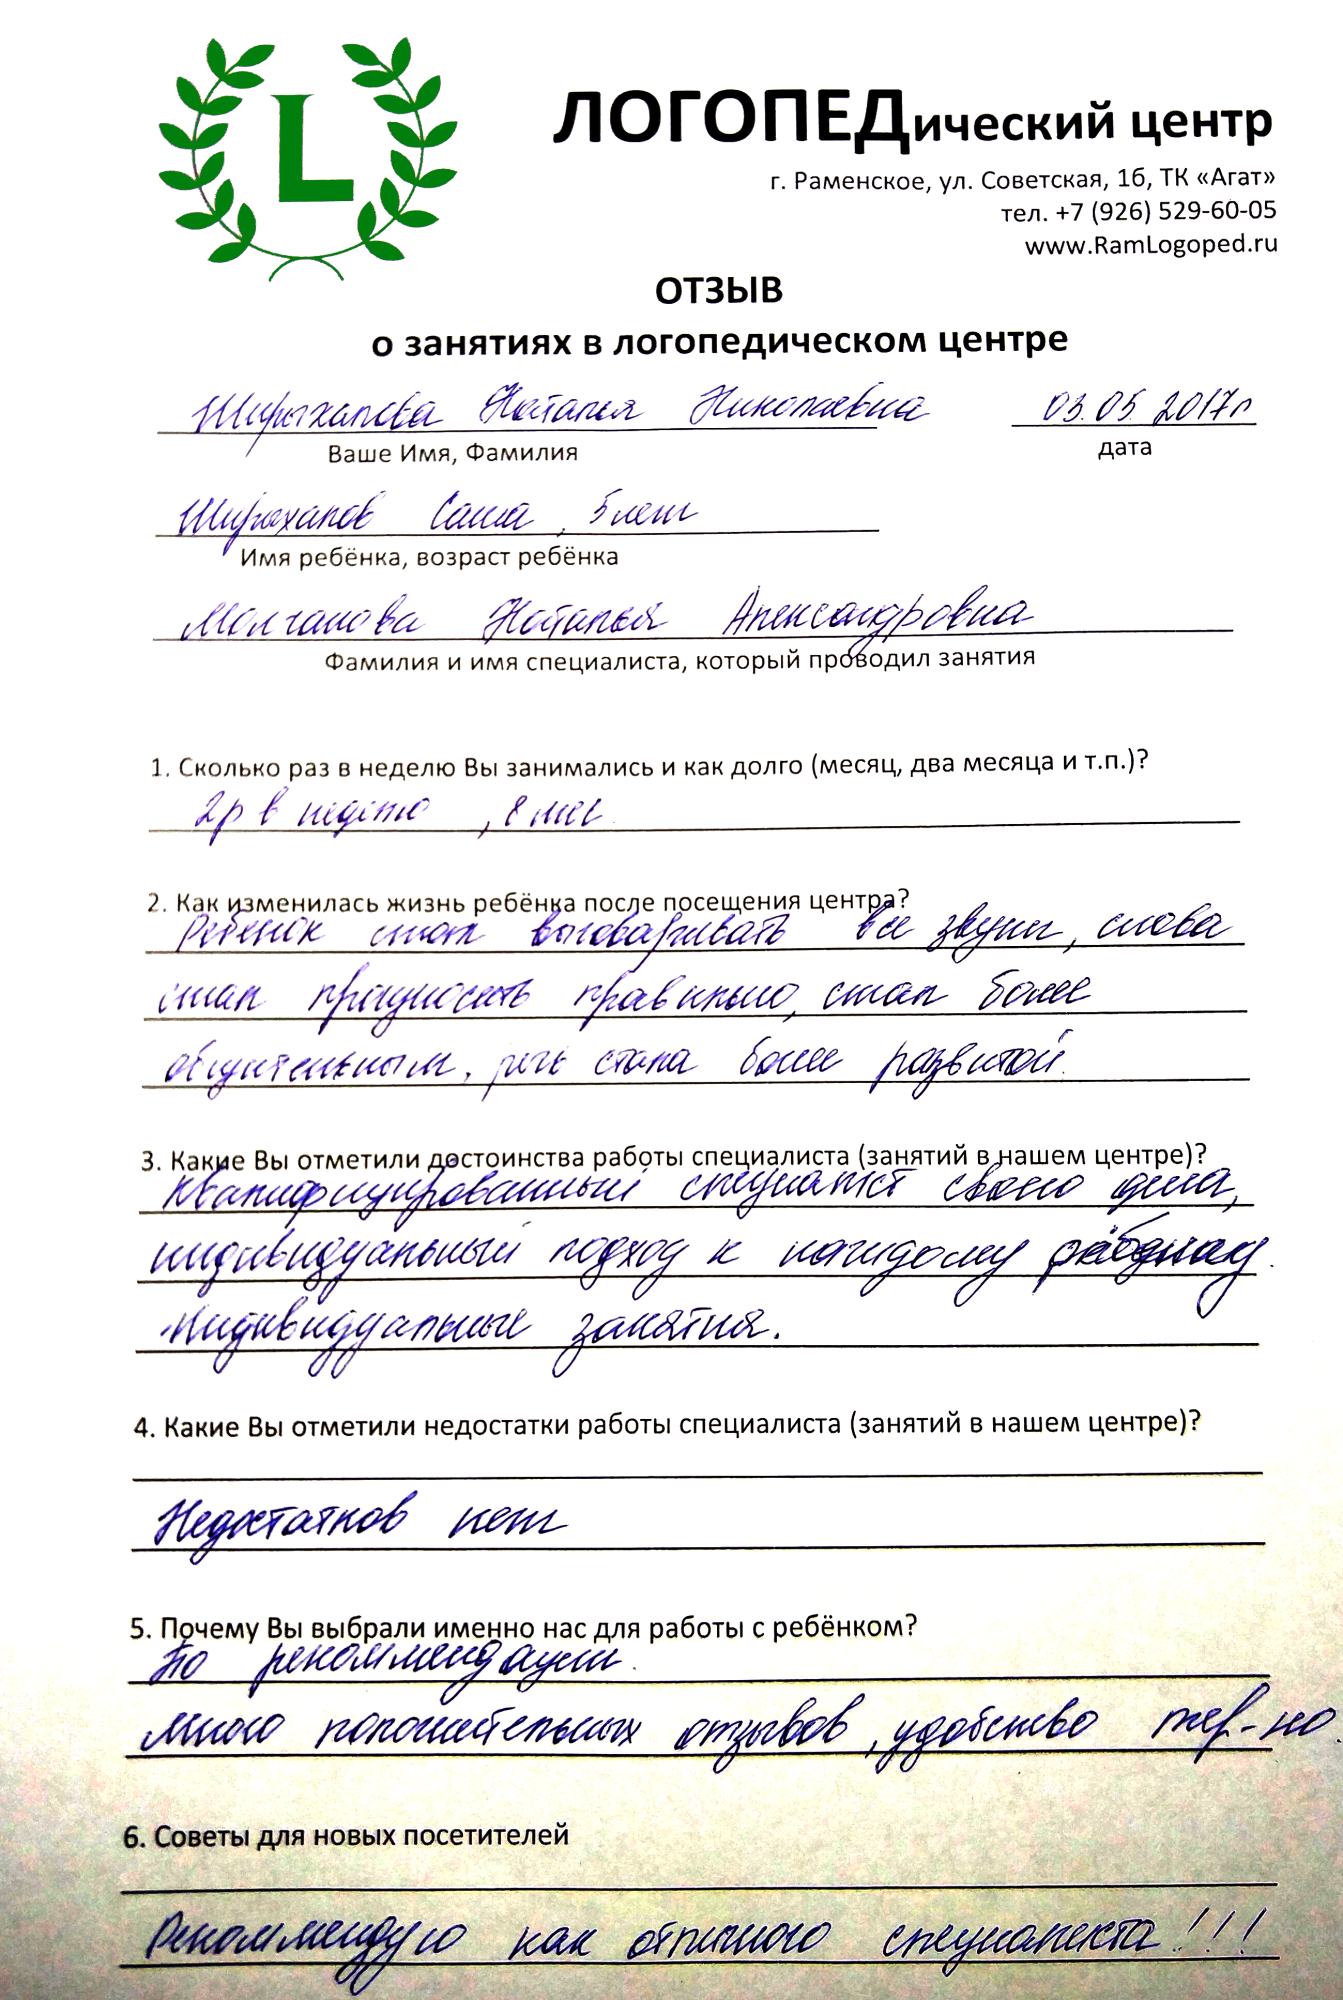 L
ЛОГОПЕДический центр
г. Раменское, ул. Советская, 1б, ТК «Агат»
тел. +7 (926) 529-60-05
www.RamLogoped.ru
ОТЗЫВ
о занятиях в логопедическом центре
Ширыхалова Наталья Николаевна 03.05.2017г
Ваше Имя, Фамилия дата
Ширыхалов Саша, 5 лет
Имя ребёнка, возраст ребёнка
Молчанова Наталья Александровна
Фамилия и имя специалиста, который проводил занятия
1. Сколько раз в неделю Вы занимались и как долго (месяц, два месяца и т.п.)?
2р в неделю, 8 мес.
2. Как изменилась жизнь ребёнка после посещения центра?
Ребенок стал выговаривать все звуки, слова
стал произносить правильно, стал более
общительным, речь стала более развитой.
3. Какие Вы отметили достоинства работы специалиста (занятий в нашем центре)?
Квалифицированный специалист своего дела,
индивидуальный подход к каждому ребёнку.
Индивидуальные занятия.
4. Какие Вы отметили недостатки работы специалиста (занятий в нашем центре)?
Недостатков нет
5. Почему Вы выбрали именно нас для работы с ребёнком?
По рекоммендации.
Много положительных отзывов, удобство тер-но.
6. Советы для новых посетителей
Рекоммендую как отличного специалиста!!!